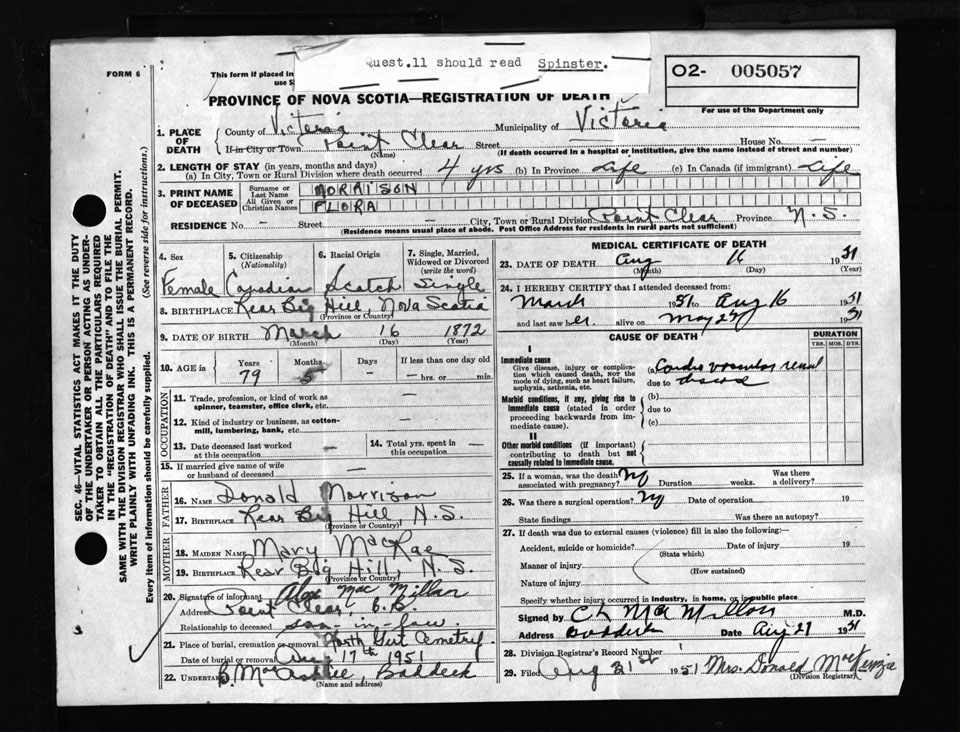 Quest.11 should read Spinster.
O2- 005057
For use of the Department only
FORM 6
This form if placed in
PROVINCE OF NOVA SCOTIA—REGISTRATION OF DEATH
1. PLACE OF DEATH
County of Victoria Municipality of Victoria
If in City or Town Point Clear Street House No. —
(Name) (If death occurred in a hospital or institution, give the name instead of street and number)
2. LENGTH OF STAY (in years, months and days)
(a) In City, Town or Rural Division where death occurred 4 yrs (b) In Province Life (c) In Canada (if immigrant) Life
3. PRINT NAME OF DECEASED
Surname or Last Name MORRISON
All Given or Christian Names FLORA
RESIDENCE No. — Street — City, Town or Rural Division Point Clear Province N.S.
(Residence means usual place of abode. Post Office Address for residents in rural parts not sufficient)
4. Sex 5. Citizenship (Nationality) 6. Racial Origin 7. Single, Married, Widowed or Divorced (write the word)
Female Canadian Scotch Single
8. BIRTHPLACE Rear Big Hill, Nova Scotia
(Province or Country)
9. DATE OF BIRTH March 16 1872
(Month) (Day) (Year)
10. AGE in Years Months Days If less than one day old
79 5 — — hrs. or min.
OCCUPATION
11. Trade, profession, or kind of work as spinner, teamster, office clerk, etc. —
12. Kind of industry or business, as cotton-mill, lumbering, bank, etc. —
13. Date deceased last worked at this occupation — 14. Total yrs. spent in this occupation. —
15. If married give name of wife or husband of deceased —
FATHER
16. NAME Donald Morrison
17. BIRTHPLACE Rear Big Hill N.S.
(Province or Country)
MOTHER
18. MAIDEN NAME Mary MacRae
19. BIRTHPLACE Rear Big Hill, N.S.
(Province or Country)
20. Signature of informant Alex Mac Millan
Address Point Clear, C.B.
Relationship to deceased son-in-law
21. Place of burial, cremation or removal North Gut Cemetery
Date of burial or removal Aug 17th 1951
22. UNDERTAKER Baddeck
(Name and address)
MEDICAL CERTIFICATE OF DEATH
23. DATE OF DEATH Aug 16 1951
(Month) (Day) (Year)
24. I HEREBY CERTIFY that I attended deceased from:
March 1951 to Aug 16 1951
and last saw her alive on May 27 1951
CAUSE OF DEATH
DURATION
YRS. MOS. DYS.
I
Immediate cause
Give disease, injury or complication which caused death, not the mode of dying, such as heart failure, asphyxia, asthenia, etc.
(a) Cardio vascular renal
due to disease
Morbid conditions, if any, giving rise to immediate cause (stated in order proceeding backwards from immediate cause).
(b)
due to
(c)
II
Other morbid conditions (if important) contributing to death but not causally related to immediate cause.
25. If a woman, was the death associated with pregnancy? No Duration weeks. Was there a delivery?
26. Was there a surgical operation? No Date of operation 19
State findings Was there an autopsy?
27. If death was due to external causes (violence) fill in also the following:—
Accident, suicide or homicide? Date of injury 19
(State which)
Manner of injury
(How sustained)
Nature of injury
Specify whether injury occurred in industry, in home, or in public place
Signed by C L MacMillan M.D.
Address Baddeck Date Aug 21 1951
28. Division Registrar's Record Number
29. Filed Aug 21st 1951 Mrs. Donald MacKenzie
(Division Registrar)
SEC. 46—VITAL STATISTICS ACT MAKES IT THE DUTY
OF THE UNDERTAKER OR PERSON ACTING AS UNDER-
TAKER TO OBTAIN ALL THE PARTICULARS REQUIRED
IN THE "REGISTRATION OF DEATH" AND TO FILE THE
SAME WITH THE DIVISION REGISTRAR WHO SHALL ISSUE THE BURIAL PERMIT.
WRITE PLAINLY WITH UNFADING INK. THIS IS A PERMANENT RECORD.
Every item of information should be carefully supplied. (See reverse side for instructions.)